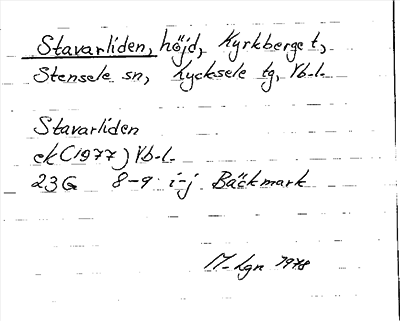 Stavarliden, höjd, Kyrkberget,
Stensele sn, Lycksele tg, Vb.l.
Stavarliden
ek (1977) Vb.l.
23G 8-9 i-j Bäckmark
M-Lgn 1978